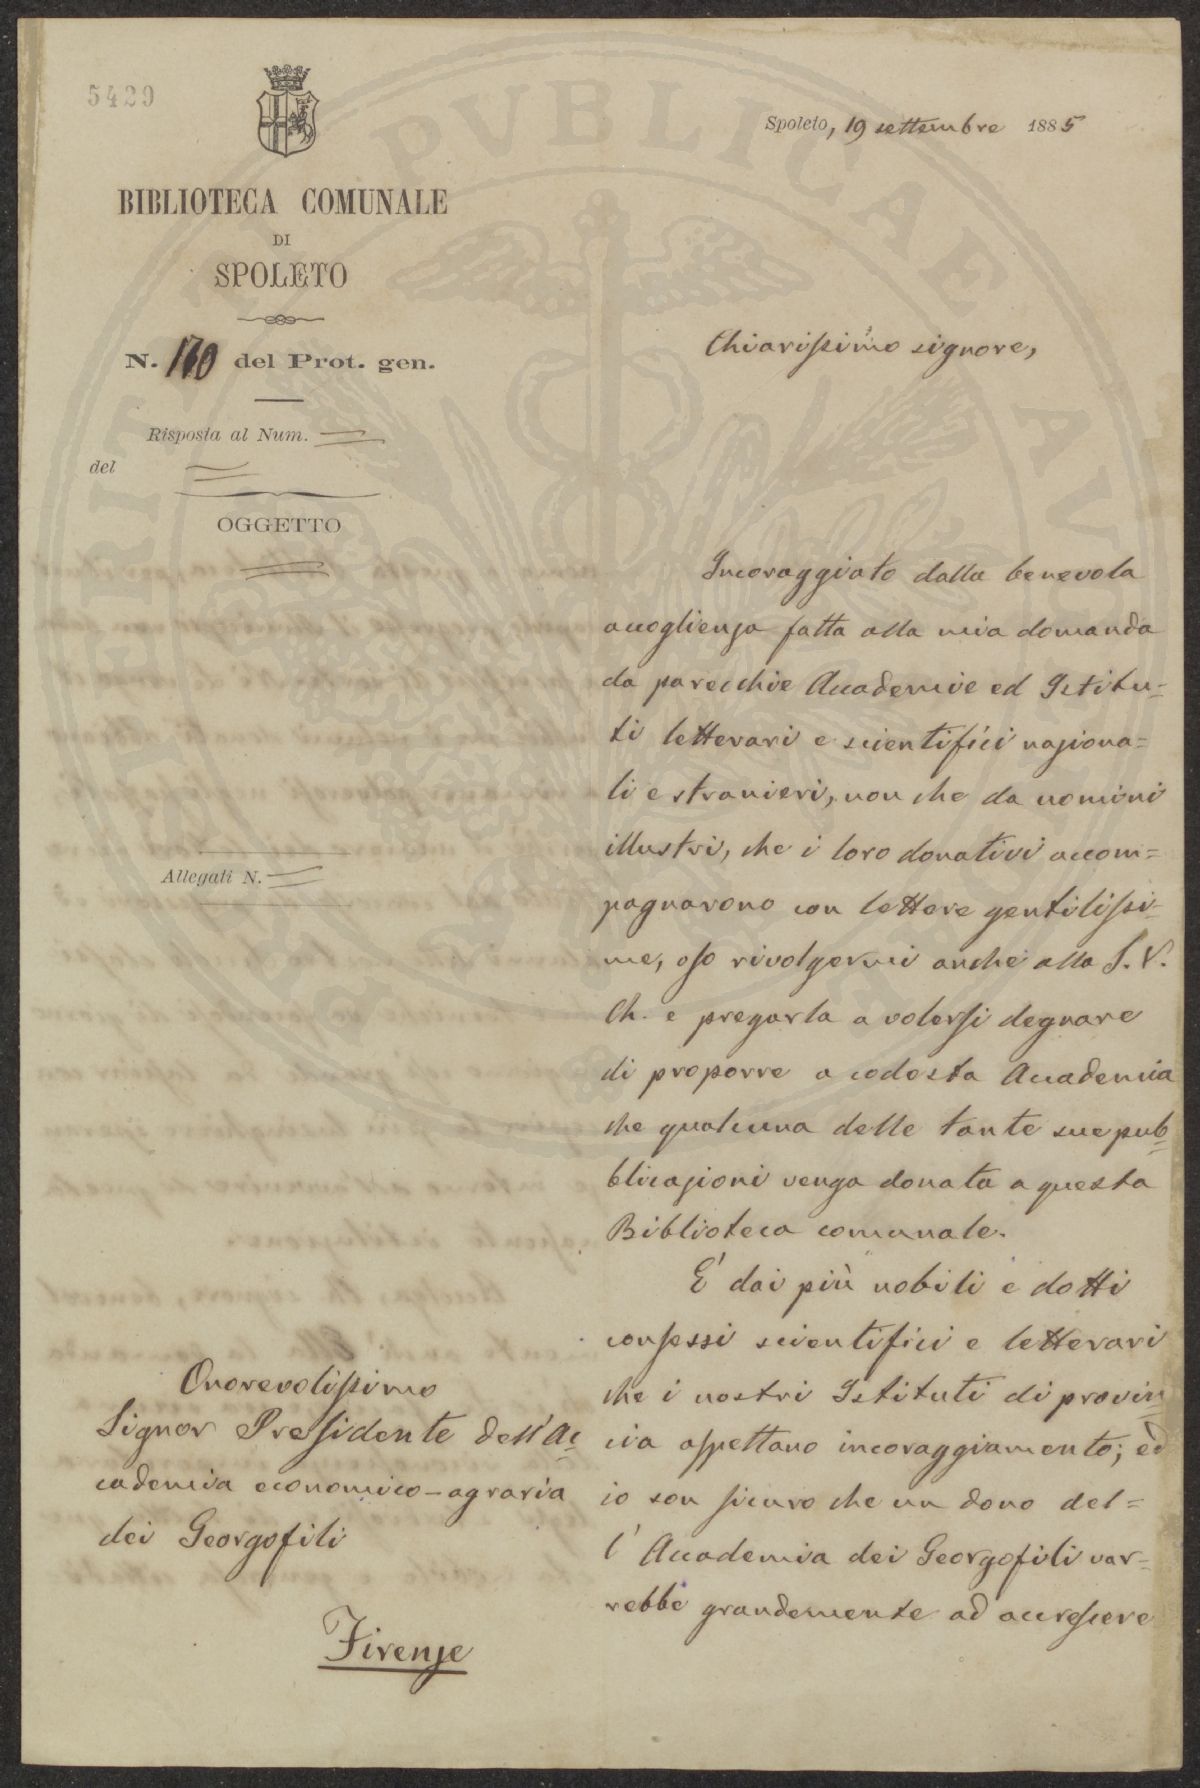 5429
BIBLIOTECA COMUNALE
DI
SPOLETO
N. 170 del Prot. gen.
Risposta al Num. =
del =
OGGETTO
=
Allegati N. =
Onorevolissimo
Signor Presidente dell'Ac=
cademia economico-agraria
dei Georgofili
Firenze
Spoleto, 19 settembre 1885
Chiarissimo signore,
Incoraggiato dalla benevola
accoglienza fatta alla mia domanda
da parecchie Accademie ed Istitu=
ti letterari e scientifici naziona=
li e stranieri, non che da uomini
illustri, che i loro donativi accom=
pagnarono con lettere gentilissi=
me, oso rivolgermi anche alla S. V.
Ch. e pregarla a volersi degnare
di proporre a codesta Accademia
che qualcuna delle tante sue pub=
blicazioni venga donata a questa
Biblioteca comunale.
E' dai più nobili e dotti
consessi scientifici e letterari
che i nostri Istituti di provin=
cia aspettano incoraggiamento; ed
io son sicuro che un dono del=
l'Accademia dei Georgofili var=
rebbe grandemente ad accrescere